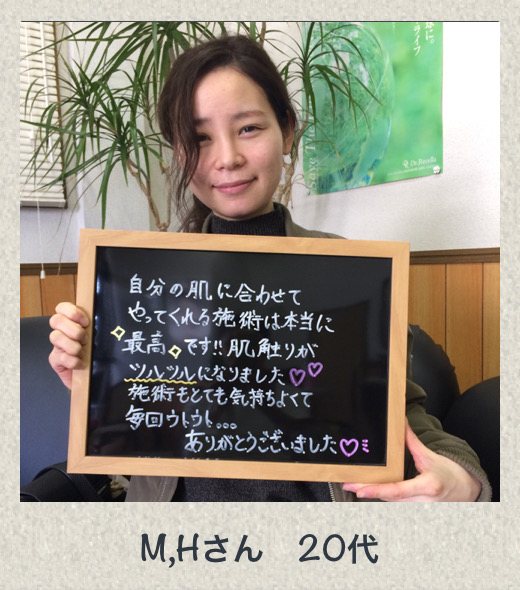 自分の肌に合わせて
やってくれる施術は本当に
最高です!!肌触りが
ツルツルになりました♡♡
施術もとても気持ちよくて
毎回ウトウト...
ありがとうございました♡
ライフ
Dr.Recella
M,Hさん 20代